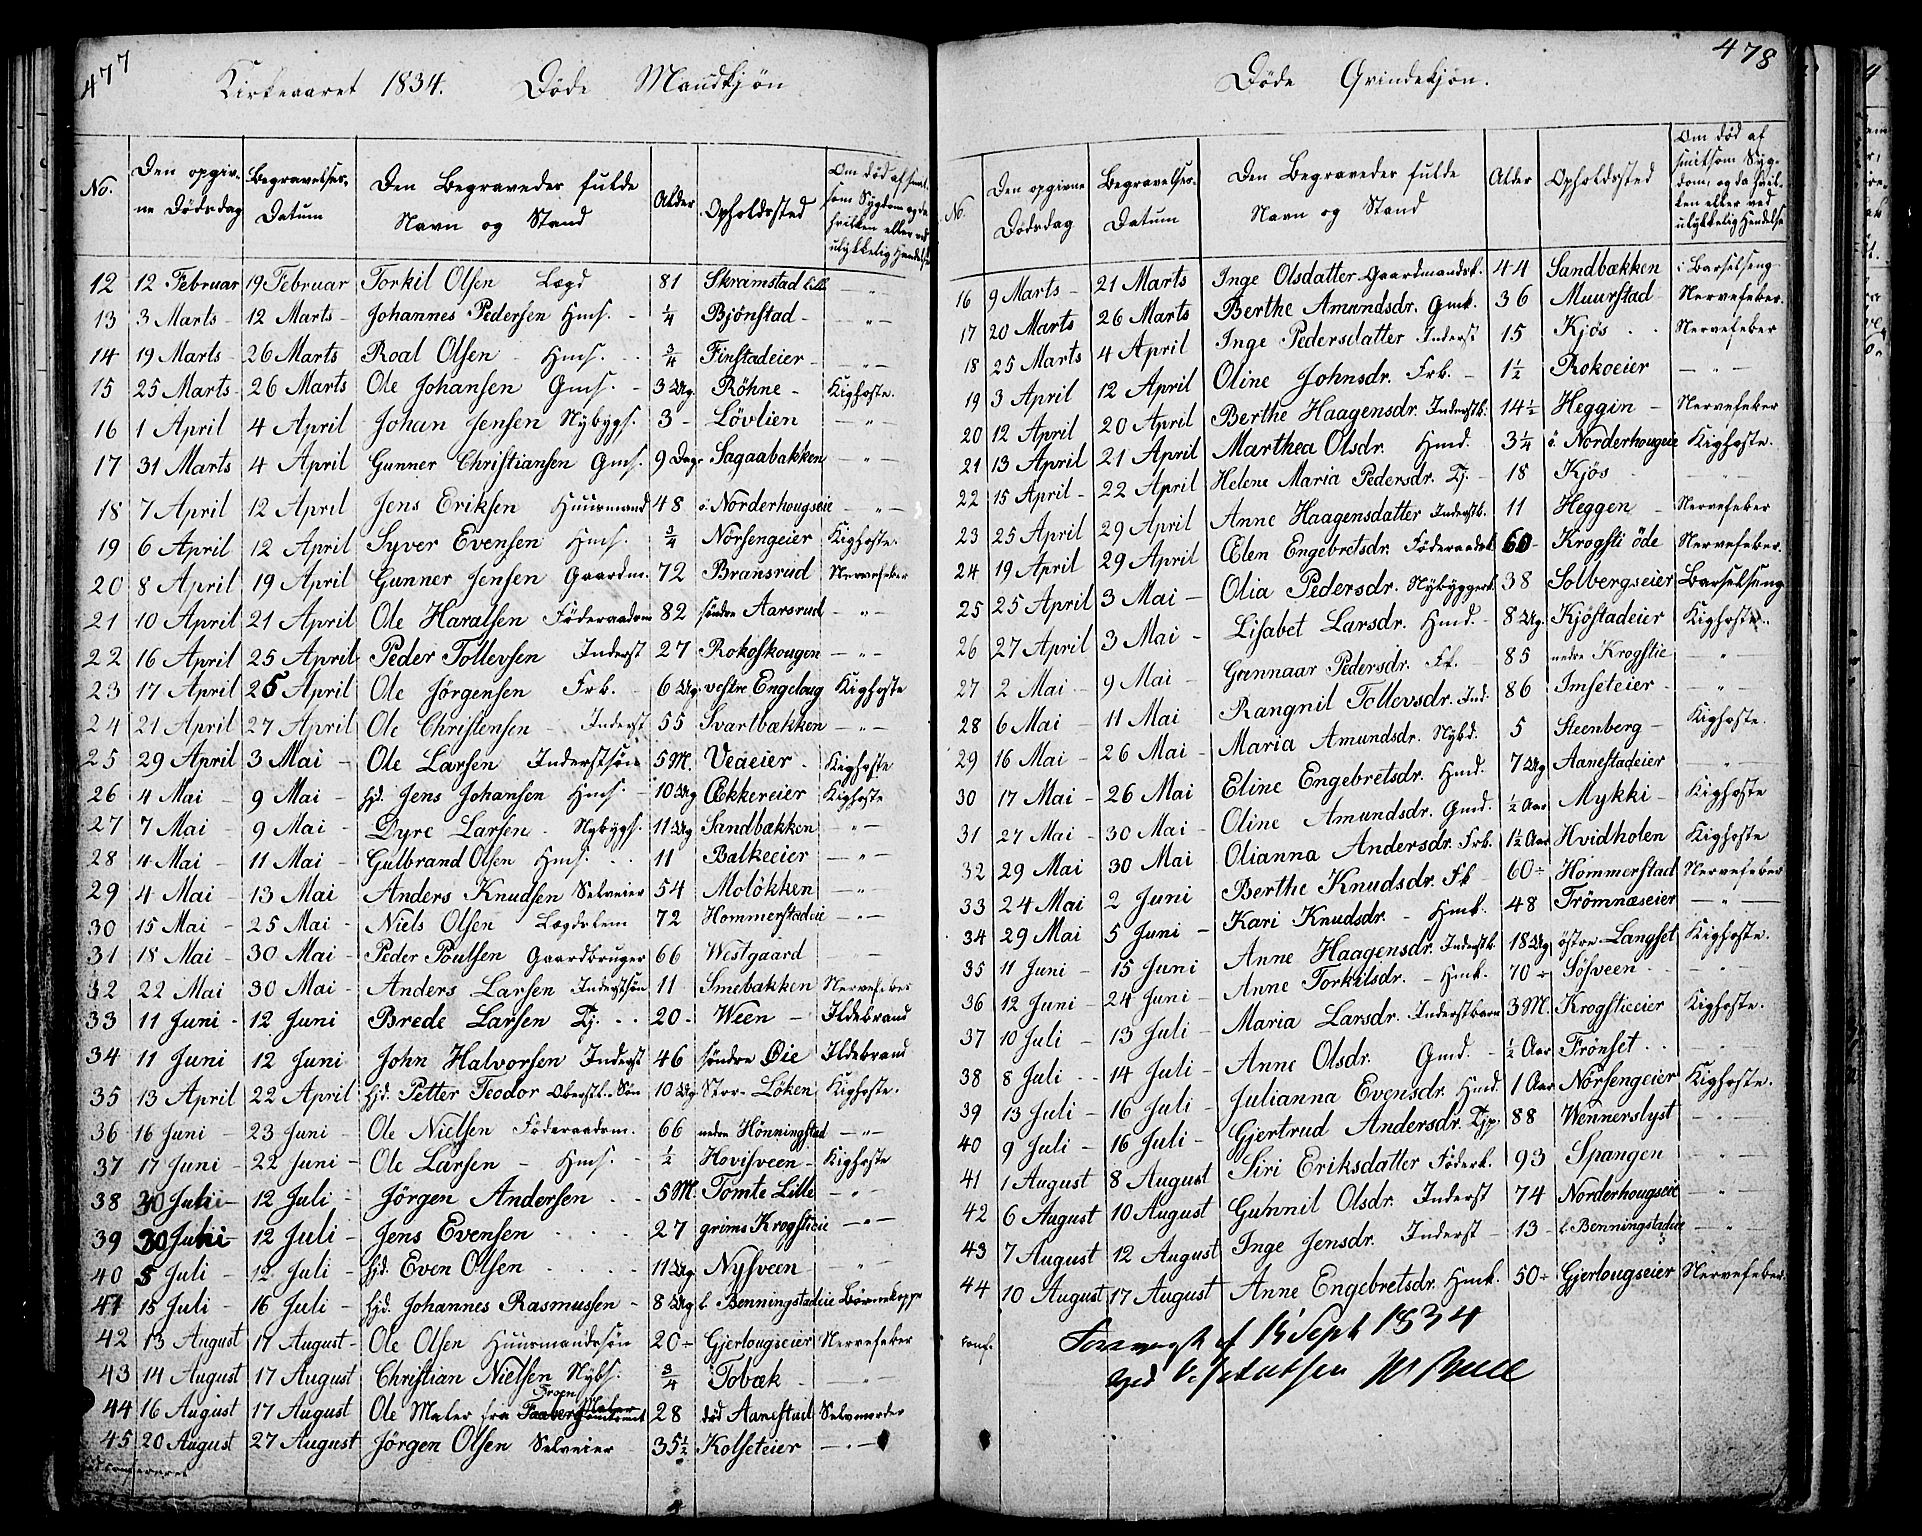 477
Kirkeaaret 1834. Døde Mandkjøn
No. | Den opgivne Dödsdag | Begravelses-Datum | Den Begravedes fulde Navn og Stand | Alder | Opholdssted | Om död af smitsom Sygdom og da hvilken eller ved ulykkelig Hændelse
12 | 12 Februar | 19 Februar | Torkil Olsen Lægd | 81 | Skramstad Lille | — " —
13 | 3 Marts | 12 Marts | Johannes Pedersen Hms. | ¼ | Bjönstad | — " —
14 | 19 Marts | 26 Marts | Roal Olsen Hms. | ¾ | Finstadeier | — " —
15 | 25 Marts | 26 Marts | Ole Johansen Gms. | 3 Ug. | Röhne | Kighoste.
16 | 1 April | 4 April | Johan Jensen Nybygs. | 3 | Lövlien | — " —
17 | 31 Marts | 4 April | Gunner Christiansen Gms. | 9 Dage | Sagaabakken | — " —
18 | 7 April | 12 April | Jens Eriksen Huusmand | 48 | ö. Norderhougseie | — " —
19 | 6 April | 12 April | Syver Evensen Hms. | ¾ | Nörsengeier | Kighoste.
20 | 8 April | 19 April | Gunner Jensen Gaardm. | 72 | Bransrud | Nervefeber
21 | 10 April | 21 April | Ole Haralsen Föderaadsm | 82 | söndre Aarsrud | — " —
22 | 16 April | 25 April | Peder Tollevsen Inderst | 27 | Rokoskougen | — " —
23 | 17 April | 25 April | Ole Jörgensen Frb. | 6 Ug. | vestre Engeloug | Kighoste
24 | 21 April | 27 April | Ole Christensen Inderst | 55 | Svartbækken | — " —
25 | 29 April | 3 Mai | Ole Larsen Inderstsön | 5 M. | Veaeier | Kighoste
26 | 4 Mai | 9 Mai | hjd. Jens Johansen Hms. | 10 Ug | Ækkereier | Kighoste
27 | 7 Mai | 9 Mai | Dyre Larsen Nybygs. | 11 Ug | Sandbækken | — " —
28 | 4 Mai | 11 Mai | Gulbrand Olsen Hms. | 11 | Balkeeier | — " —
29 | 4 Mai | 13 Mai | Anders Knudsen Selveier | 54 | Molökken | — " —
30 | 15 Mai | 25 Mai | Niels Olsen Lægdslem | 72 | Hommerstadeie | — " —
31 | 18 Mai | 30 Mai | Peder Poulsen Gaardbruger | 66 | Westgaard
32 | 22 Mai | 30 Mai | Anders Larsen Inderstsön | 11 | Smebakken | Nervefeber
33 | 11 Juni | 12 Juni | Brede Larsen Tj. | 20 | Ween | Ildebrand
34 | 11 Juni | 12 Juni | John Halvorsen Inderst | 46 | söndre Öie | Ildebrand
35 | 13 April | 22 April | hjd. Petter Teodor Oberstl. Sön | 10 Ug | Stor-Löken | Kighoste.
36 | 16 Juni | 23 Juni | Ole Nielsen Föderaadsm. | 66 | nedre Hönningstad | — " —
37 | 17 Juni | 22 Juni | Ole Larsen Hms. | ½ | Hovisveen | Kighoste
38 | 30 Juli | 12 Juli | Jörgen Andersen | 5 M. | Tomte Lille | — " —
39 | 30 Juni | 12 Juli | Jens Evensen | 27 | grims Krogstieie | — " —
40 | 5 Juli | 12 Juli | hjd. Even Olsen | 11 Ug | Nysveen | "
41 | 15 Juli | 16 Juli | hjd. Johannes Rasmussen | 8 Ug | l. Benningstadeie | Börnekopper
42 | 13 August | 17 August | Ole Olsen Huusmandssön | 20 | Gjerlougseier | Nervefeber
43 | 14 August | 17 August | Christian Nielsen Nybs. | ¾ | Tobæk | — " —
44 | 16 August | 17 August | Ole Maler fra Faaberg Tropn Maler | 28 | död Aanestad | Selvmorder
45 | 20 August | 27 August | Jörgen Olsen Selveier | 35½ | Kolseteier | — " —
478
Døde Qvindekjøn.
No. | Den opgivne Dödsdag | Begravelses-Datum | Den Begravedes fulde Navn og Stand | Alder | Opholdssted | Om död af smitsom Sygdom, og da hvilken eller ved ulykkelig Hændelse
16 | 9 Marts | 21 Marts | Inge Olsdatter Gaardmandsk. | 44 | Sandbækken | i Barselseng
17 | 20 Marts | 26 Marts | Berthe Amundsdr. Gmk. | 36 | Muurstad | Nervefeber.
18 | 25 Marts | 4 April | Inge Pedersdatter Inderst | 15 | Kjös | Nervefeber
19 | 3 April | 12 April | Oline Johnsdr. Frb. | 1½ | Rokoeier | — " —
20 | 12 April | 20 April | Berthe Haagensdr. Inderstb. | 14½ | Heggin | Nervefeber
21 | 13 April | 21 April | Marthea Olsdr. Hmd. | 3¼ | ö. Norderhougeie | Kighoste.
22 | 15 April | 22 April | Helene Maria Pedersdr. Tj. | 18 | Kjös | "
23 | 25 April | 29 April | Anne Haagensdatter Inderstb. | 11 | Heggen | Nervefeber
24 | 19 April | 29 April | Ælen Engebretsdr. Föderaadsk | 60 | Krogsti öde | Nervefeber.
25 | 25 April | 3 Mai | Olia Pedersdr. Nybyggerk. | 38 | Solbergseier | Barselseng
26 | 27 April | 3 Mai | Lisabet Larsdr. Hmd. | 8 Ug. | Kjöstadeier | Kighoste.
27 | 2 Mai | 9 Mai | Gunnaar Pedersdr. Fk. | 85 | nedre Krogstie | "
28 | 6 Mai | 11 Mai | Rangnil Tollevsdr. Ind. | 86 | Imseteier | — " —
29 | 16 Mai | 26 Mai | Maria Amundsdr. Nybd. | 5 | Steenberg | Kighoste.
30 | 17 Mai | 26 Mai | Eline Engebretsdr. Hmd. | 7 Ug | Aanestadeier | — " —
31 | 27 Mai | 30 Mai | Oline Amundsdr. Gmd. | ½ Aar | Mykki | Kighoste
32 | 29 Mai | 30 Mai | Olianna Andersdr. Frb. | 1½ Aar | Hvidholen | Kighoste
33 | 24 Mai | 2 Juni | Berthe Knudsdr. Fk | 60 | Hommerstad | Nervefeber
34 | 29 Mai | 5 Juni | Kari Knudsdr. Hmk. | 48 | Frömnæseier | — " —
35 | 11 Juni | 15 Juni | Anne Haagensdr. Inderstb. | 18 Ug | östre Langset | Kighoste.
36 | 12 Juni | 24 Juni | Anne Torkilsdr. Hmk. | 70 | Sösveen | — " —
37 | 10 Juli | 13 Juli | Maria Larsdr. Inderstbarn | 3 M. | Krogstieeier | Kighoste.
38 | 8 Juli | 14 Juli | Anne Olsdr. Gmd. | ½ Aar | Frönset
39 | 13 Juli | 16 Juli | Julianna Evensdr. Hmd. | 1 Aar | Nörsengeier | Kighoste.
40 | 9 Juli | 16 Juli | Gjertrud Andersdr. Tjp. | 88 | Wennerslyst | "
41 | 1 August | 8 August | Siri Eriksdatter Föderk. | 93 | Spangen | "
42 | 6 August | 10 August | Gunnil Olsdr. Inderst | 74 | Norderhougseie | — " —
43 | 7 August | 12 August | Inge Jensdr. Inderst | 13 | l. Benningstadeie | — " —
44 | 10 August | 17 August | Anne Engebretsdr. Hmk. | 50 | Gjerlougseier | Nervefeber.
conf. 15 Sept 1834